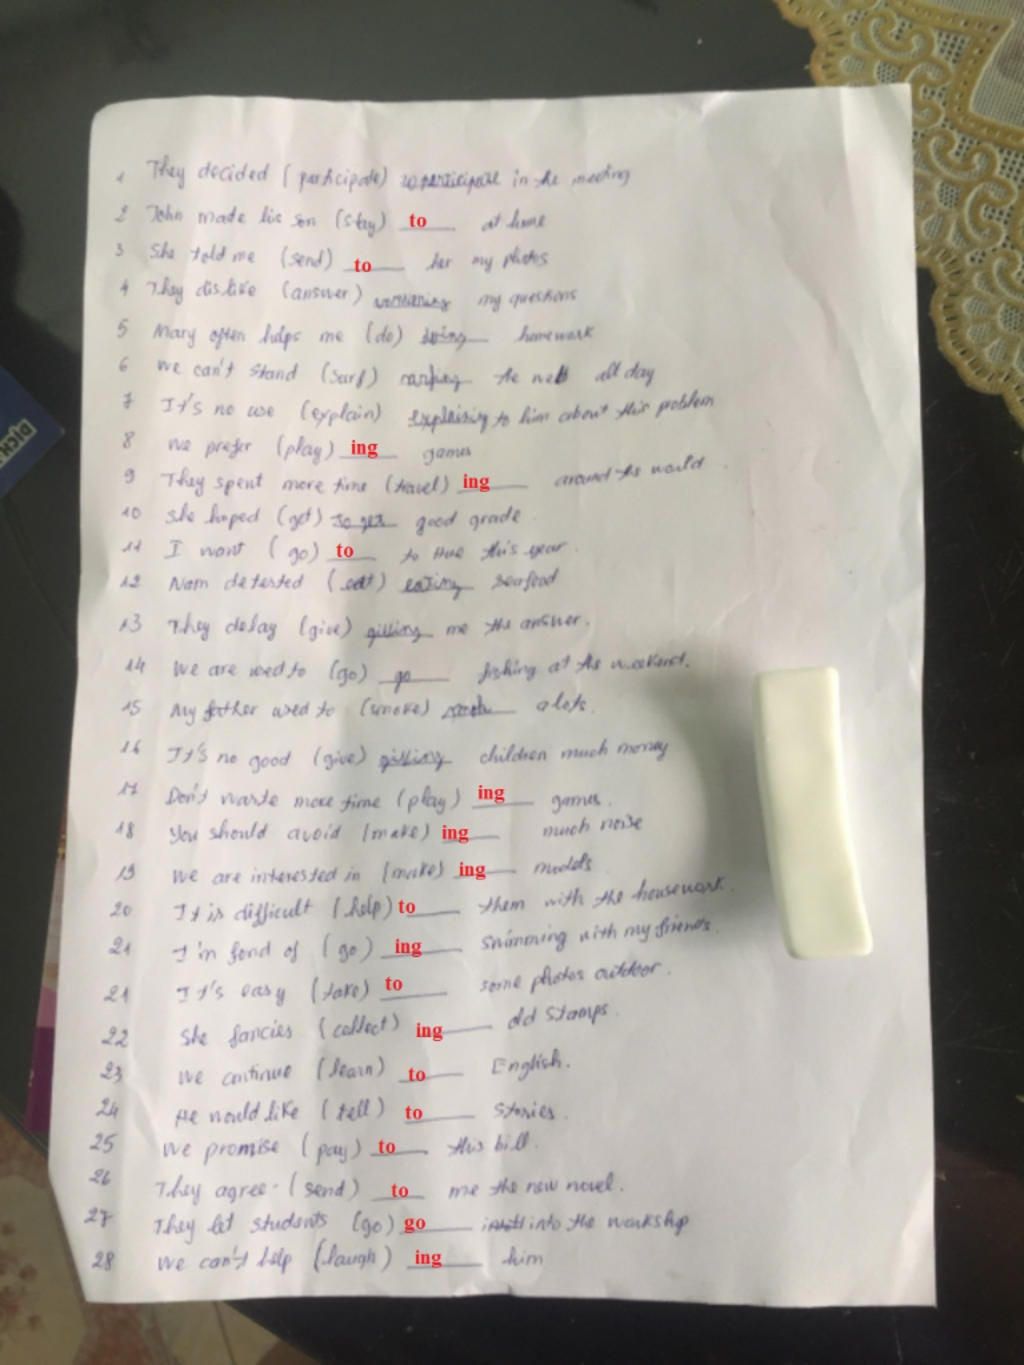 1 They decided ( participate) to participate in the meeting
2 John made his son (stay) to at home
3 She told me (send) to her my photos
4 They dislike (answer) my questions
5 Mary often helps me (do) doing homework
6 We can't stand (surf) the web all day
7 It's no use (explain) explaining to him about this problem
8 We prefer (play) ing games
9 They spent more time (travel) ing around the world
10 She hoped (get) to get good grade
11 I want ( go) to to Hue this year.
12 Nam detested (eat) eating seafood
13 They delay (give) me the answer.
14 We are used to (go) go fishing at the weekend.
15 My father used to (smoke) a lots.
16 It's no good (give) children much money
17 Don't waste more time (play) ing games.
18 You should avoid (make) ing much noise
19 We are interested in (make) ing models
20 It is difficult (help) to them with the housework.
21 I'm fond of (go) ing swimming with my friends.
21 It's easy (take) to some photos outdoor.
22 She fancies (collect) ing old stamps.
23 We continue (learn) to English.
24 He would like (tell) to stories.
25 We promise (pay) to this bill.
26 They agree (send) to me the new novel.
27 They let students (go) go into the workshop
28 We can't help (laugh) ing him
DICH